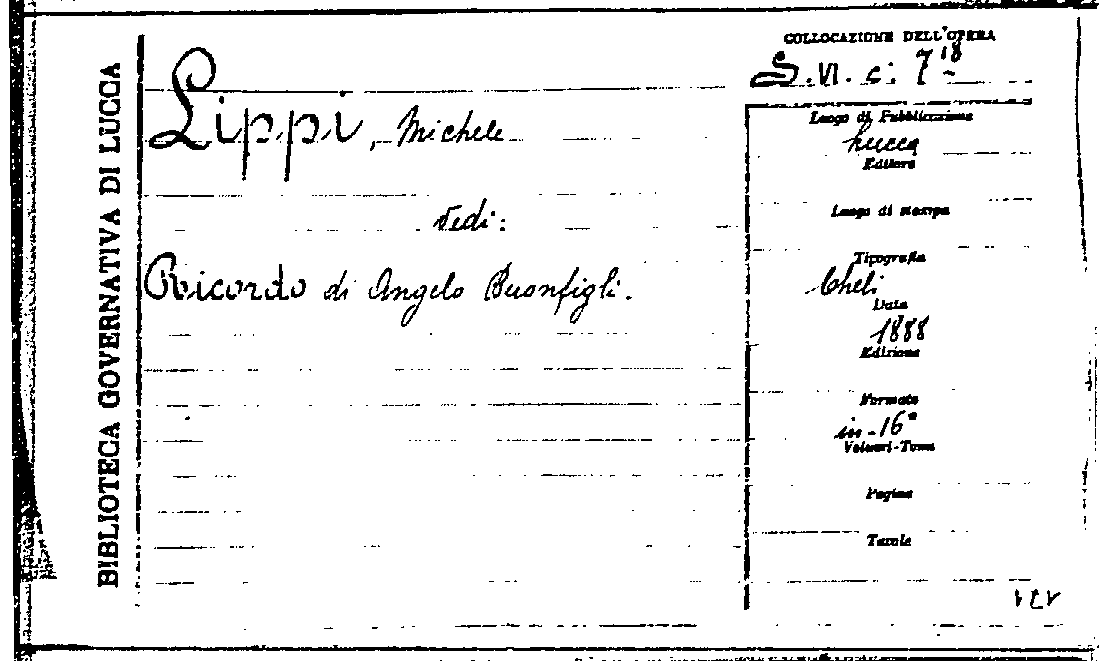 BIBLIOTECA GOVERNATIVA DI LUCCA
Lippi, Michele
Vedi:
Ricordo di Angelo Buonfigli.
COLLOCAZIONE DELL'OPERA
S. VI. c: 7 18
Luogo di Pubblicazione
Lucca
Editore
Luogo di stampa
Tipografia
Cheli
Data
1888
Edizione
Formato
in-16°
Volumi-Tomi
Pagine
Tavole